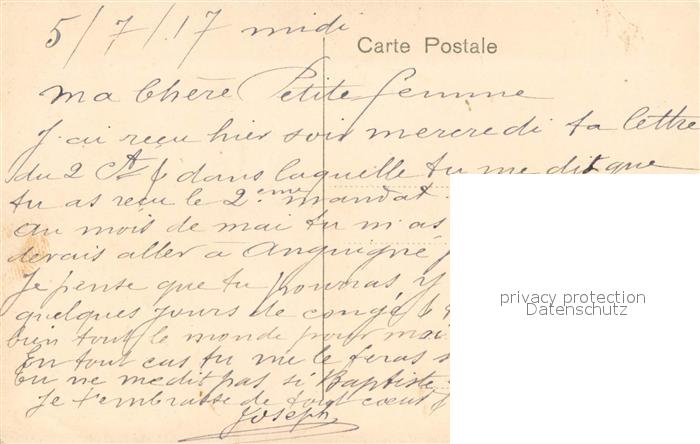 5/7/17 midi
Carte Postale
Ma Chère Petite femme
J'ai reçu hier soir mercredi ta lettre
du 2 Ct & dans laquelle tu me dit que
tu as reçu le 2eme mandat.
au mois de mai tu m'as
derais aller à
Je pense que tu pourras y
quelques jours de congé
bien tout le monde pour moi
En tout cas tu me le feras s
tu ne me dit pas si Baptiste
Je t'embrasse de tout cœur
Joseph
privacy protection
Datenschutz